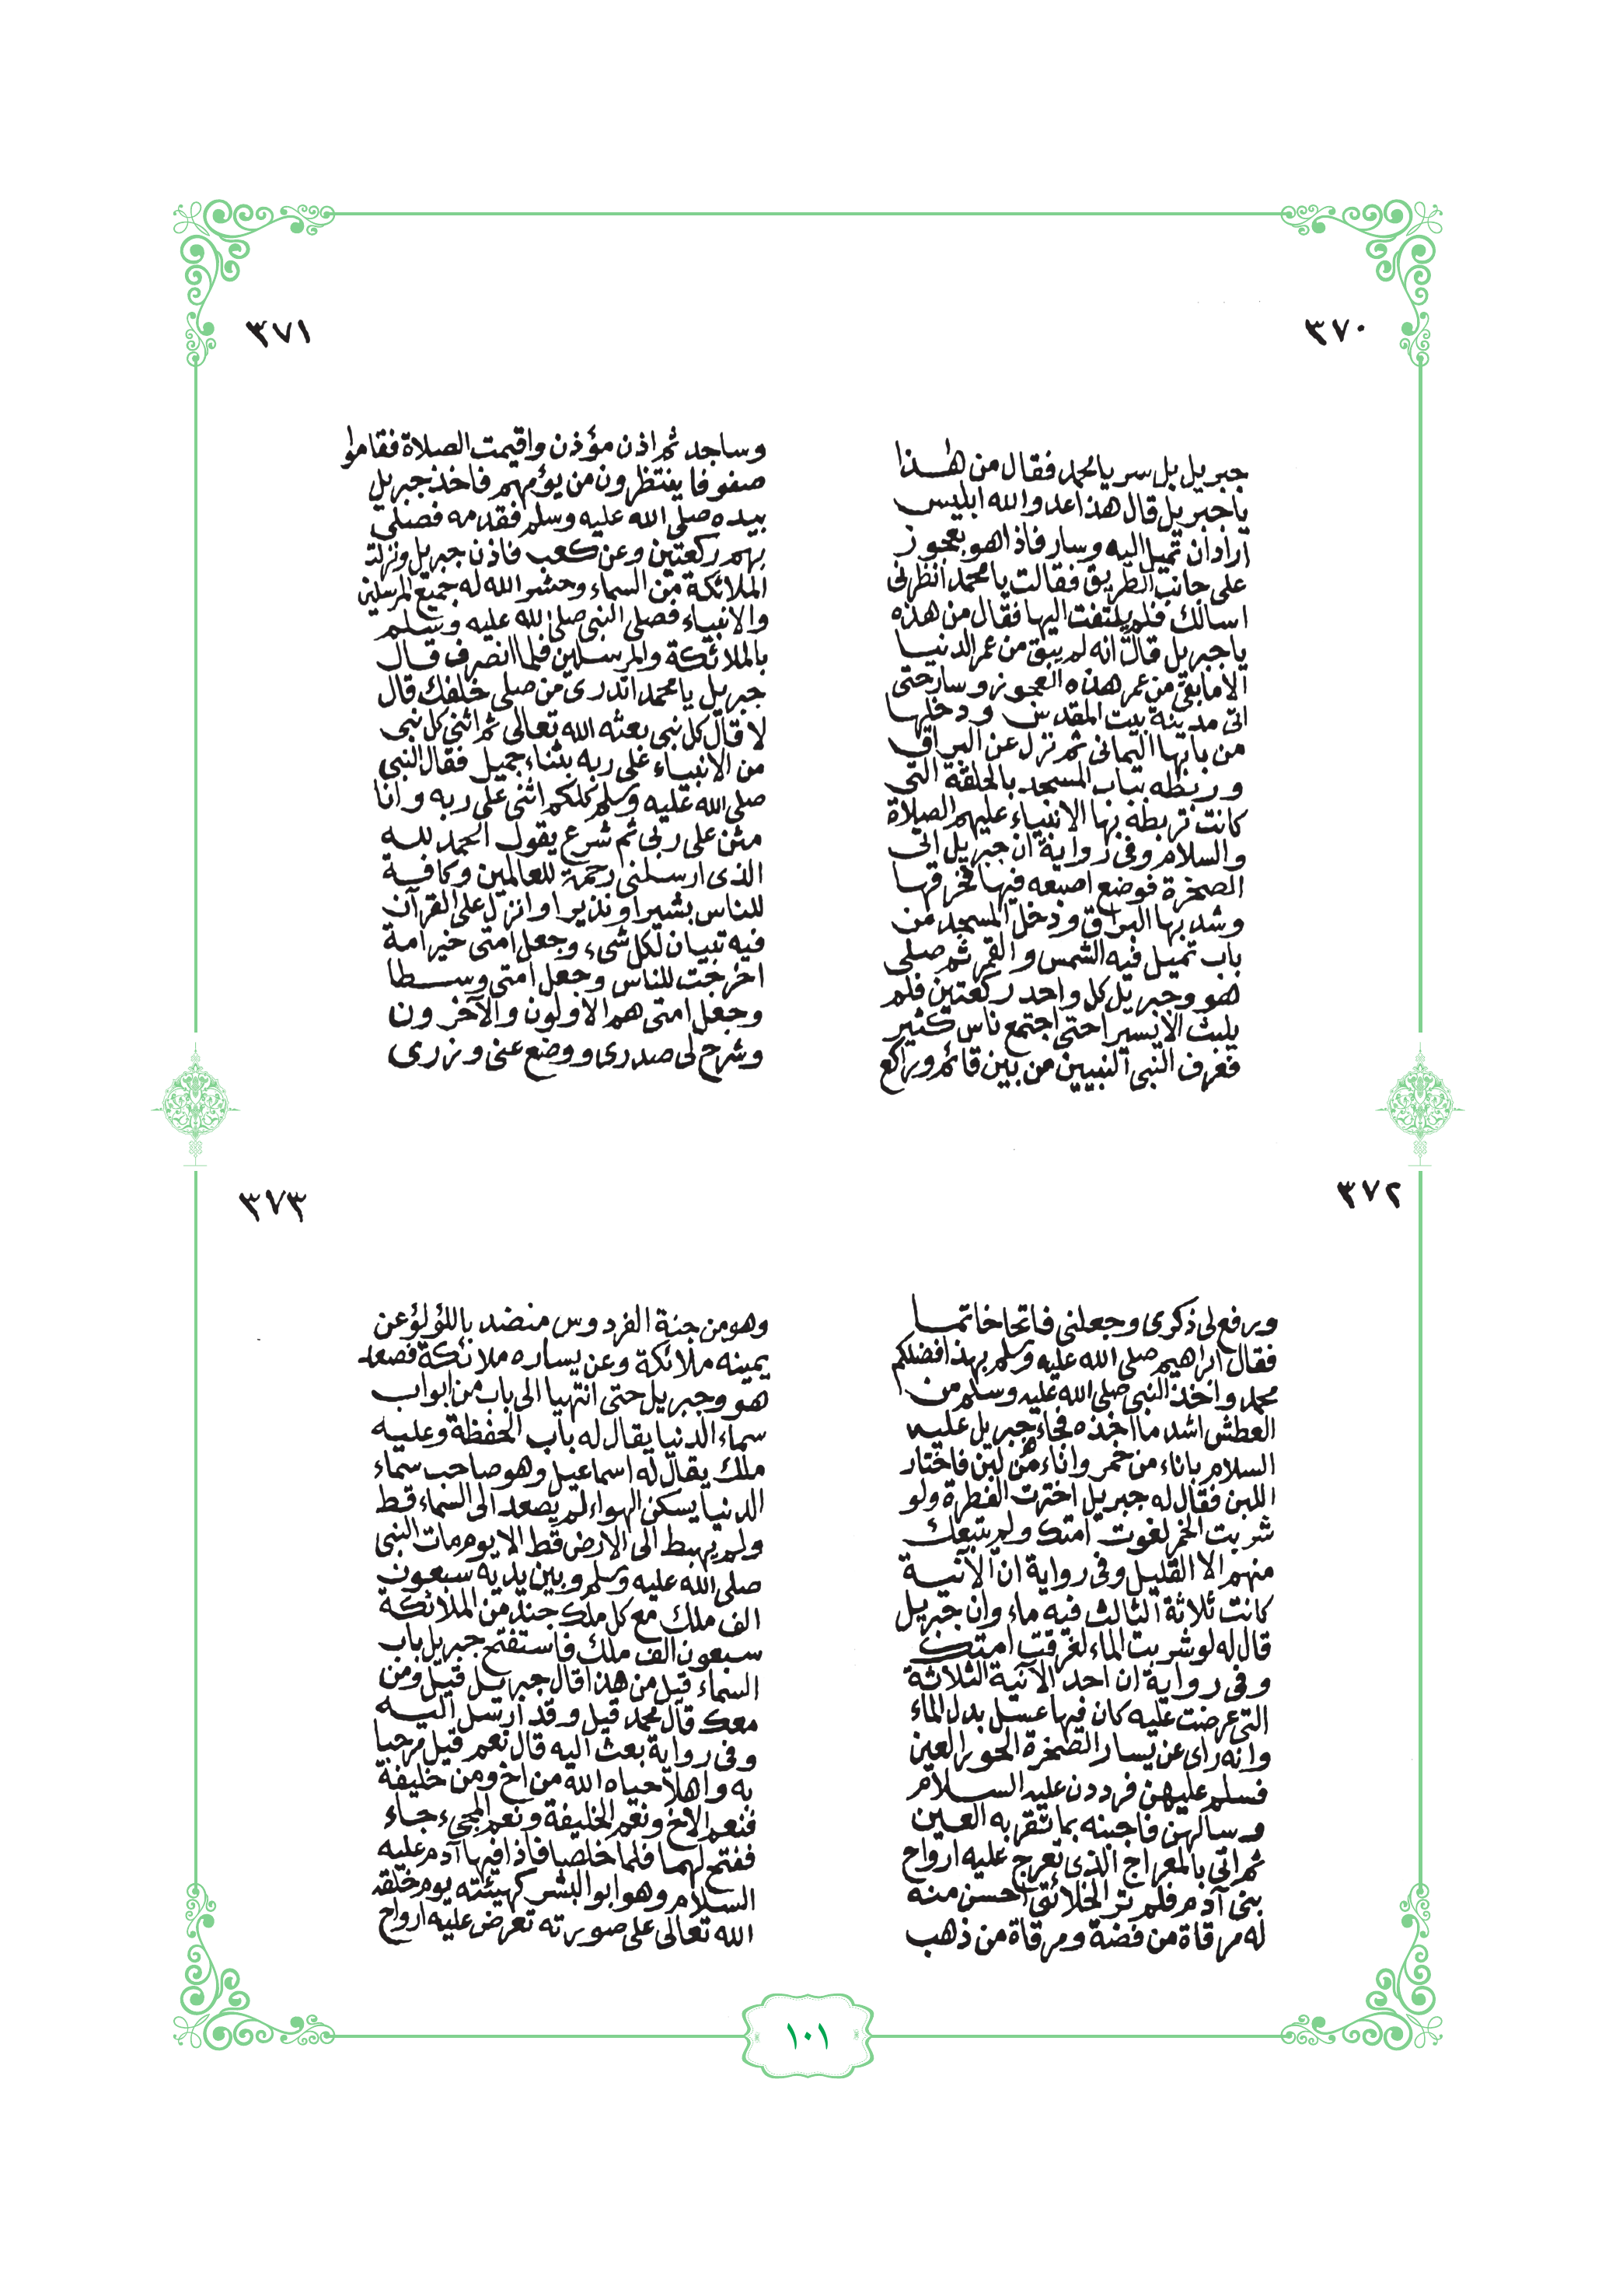 ٣٧٠
جبريل بل سر يا محمد فقال من هذا
يا جبريل قال هذا عدو الله ابليس
اراد ان تميل اليه وسار فاذا هو بعجوز
على جانب الطريق فقالت يا محمد انظرنى
اسالك فلم يلتفت اليها فقال من هذه
يا جبريل قال انه لم يبق من عمر الدنيا
الا ما بقى من عمر هذه العجوز وسار حتى
اتى مدينة بيت المقدس ودخلها
من بابها اليمانى ثم نزل عن البراق
وربطه بباب المسجد بالحلقة التى
كانت تربطه بها الانبياء عليهم الصلاة
والسلام وفى رواية ان جبريل اتى
الصخرة فوضع اصبعه فيها فخرقها
وشد بها البراق ودخل المسجد من
باب تميل فيه الشمس والقمر ثم صلى
هو وجبريل كل واحد ركعتين فلم
يلبث الا يسيرا حتى اجتمع ناس كثير
فعرف النبى النبيين من بين قائم وراكع
٣٧١
وساجد ثم اذن مؤذن واقيمت الصلاة فقاموا
صفوفا ينتظرون من يؤمهم فاخذ جبريل
بيده صلى الله عليه وسلم فقدمه فصلى
بهم ركعتين وعن كعب فاذن جبريل ونزلت
الملائكة من السماء وحشر الله له جميع المرسلين
والانبياء فصلى النبى صلى الله عليه وسلم
بالملائكة والمرسلين فلما انصرف قال
جبريل يا محمد اتدرى من صلى خلفك قال
لا قال كل نبى بعثه الله تعالى ثم اثنى كل نبى
من الانبياء على ربه بثناء جميل فقال النبى
صلى الله عليه وسلم كلكم اثنى على ربه وانا
مثن على ربى ثم شرع يقول الحمد لله
الذى ارسلنى رحمة للعالمين وكافة
للناس بشيرا ونذيرا وانزل على القرآن
فيه تبيان لكل شىء وجعل امتى خير امة
اخرجت للناس وجعل امتى وسطا
وجعل امتى هم الاولون والآخرون
وشرح لى صدرى ووضع عنى وزرى
٣٧٢
ورفع لى ذكرى وجعلنى فاتحا خاتما
فقال ابراهيم صلى الله عليه وسلم بهذا افضلكم
محمد واخذ النبى صلى الله عليه وسلم من
العطش اشد ما اخذه فجاء جبريل عليه
السلام باناء من خمر واناء من لبن فاختار
اللبن فقال له جبريل اخترت الفطرة ولو
شربت الخمر لغوت امتك ولم يتبعك
منهم الا القليل وفى رواية ان الآنية
كانت ثلاثة الثالث فيه ماء وان جبريل
قال له لو شربت الماء لغرقت امتك
وفى رواية ان احد الآنية الثلاثة
التى عرضت عليه كان فيها عسل بدل الماء
وانه راى عن يسار الصخرة الحور العين
فسلم عليهن فرددن عليه السلام
وسالهن فاجبنه بما تقر به العين
ثم اتى بالمعراج الذى تعرج عليه ارواح
بنى آدم فلم تر الخلائق احسن منه
له مرقاة من فضة ومرقاة من ذهب
٣٧٣
وهو من جنة الفردوس منضد باللؤلؤ عن
يمينه ملائكة وعن يساره ملائكة فصعد
هو وجبريل حتى انتهيا الى باب من ابواب
سماء الدنيا يقال له باب الحفظة وعليه
ملك يقال له اسماعيل وهو صاحب سماء
الدنيا يسكن الهواء لم يصعد الى السماء قط
ولم يهبط الى الارض قط الا يوم مات النبى
صلى الله عليه وسلم وبين يديه سبعون
الف ملك مع كل ملك جند من الملائكة
سبعون الف ملك فاستفتح جبريل باب
السماء قيل من هذا قال جبريل قيل ومن
معك قال محمد قيل وقد ارسل اليه
وفى رواية بعث اليه قال نعم قيل مرحبا
به واهلا حياه الله من اخ ومن خليفة
فنعم الاخ ونعم الخليفة ونعم المجىء جاء
ففتح لهما فلما خلصا فاذا فيها آدم عليه
السلام وهو ابو البشر كهيئته يوم خلقه
الله تعالى على صورته تعرض عليه ارواح
١٠١